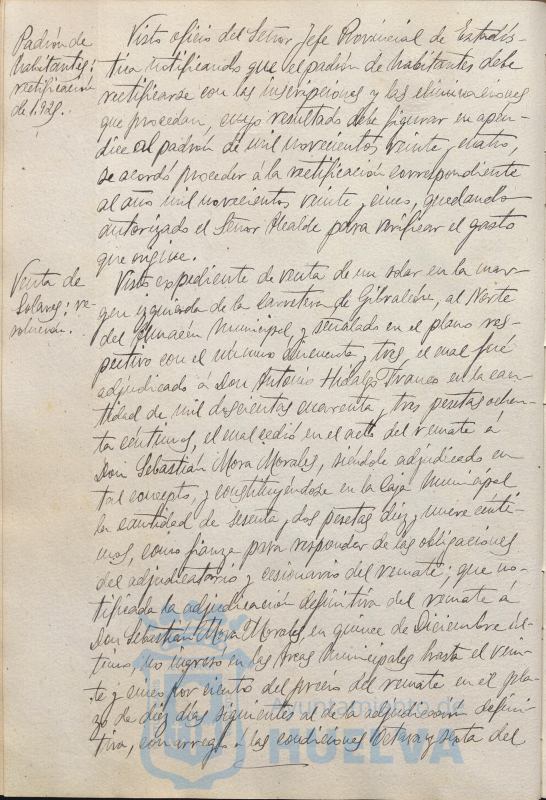 Padrón de
habitantes:
rectificación
de 1925.
Visto oficio del Señor Jefe Provincial de Estadís-
tica notificando que el padrón de habitantes debe
rectificarse con las inscripciones y las eliminaciones
que procedan, cuyo resultado debe figurar en apén-
dice al padrón de mil novecientos veinte y cuatro,
se acordó proceder á la rectificación correspondiente
al año mil novecientos veinte y cinco, quedando
autorizado el Señor Alcalde para verificar el gasto
que origine.
Venta de
Solares: re-
solución.
Visto expediente de venta de un solar en la mar-
gen izquierda de la Carretera de Gibraleón, al Norte
del Almacén Municipal, y señalado en el plano res-
pectivo con el número cincuenta y tres, el cual fué
adjudicado á Don Antonio Hidalgo Franco en la can-
tidad de mil doscientas cuarenta y tres pesetas ochen-
ta céntimos, el cual cedió en el acto del remate á
Don Sebastián Mora Morales, siéndole adjudicado en
tal concepto, y constituyéndose en la Caja Municipal
la cantidad de sesenta y dos pesetas diez y nueve cénti-
mos, como fianza para responder de las obligaciones
del adjudicatario y cesionario del remate; que no-
tificada la adjudicación definitiva del remate á
Don Sebastián Mora Morales, en quince de Diciembre úl-
timo, no ingresó en las arcas Municipales hasta el vein-
te y cinco por ciento del precio del remate en el pla-
zo de diez días siguientes al de la adjudicación defini-
tiva, con arreglo á las condiciones Octava y sexta del
Ayuntamiento de
HUELVA